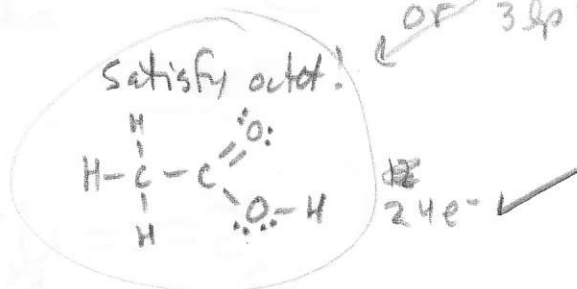 or 3 lp
Satisfy octet!
H
:O:
H-C-C
O-H
H
24e-